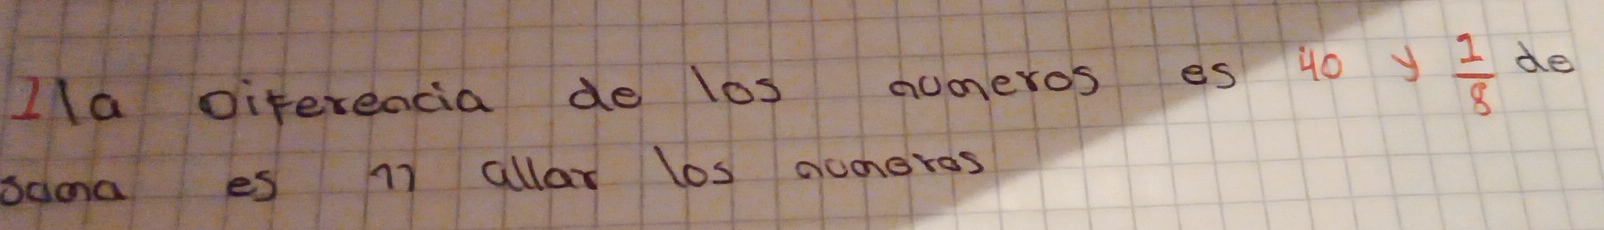 1 la Diferencia de los numeros es 40 y 1/8 de
suma es 11 allar los numeros